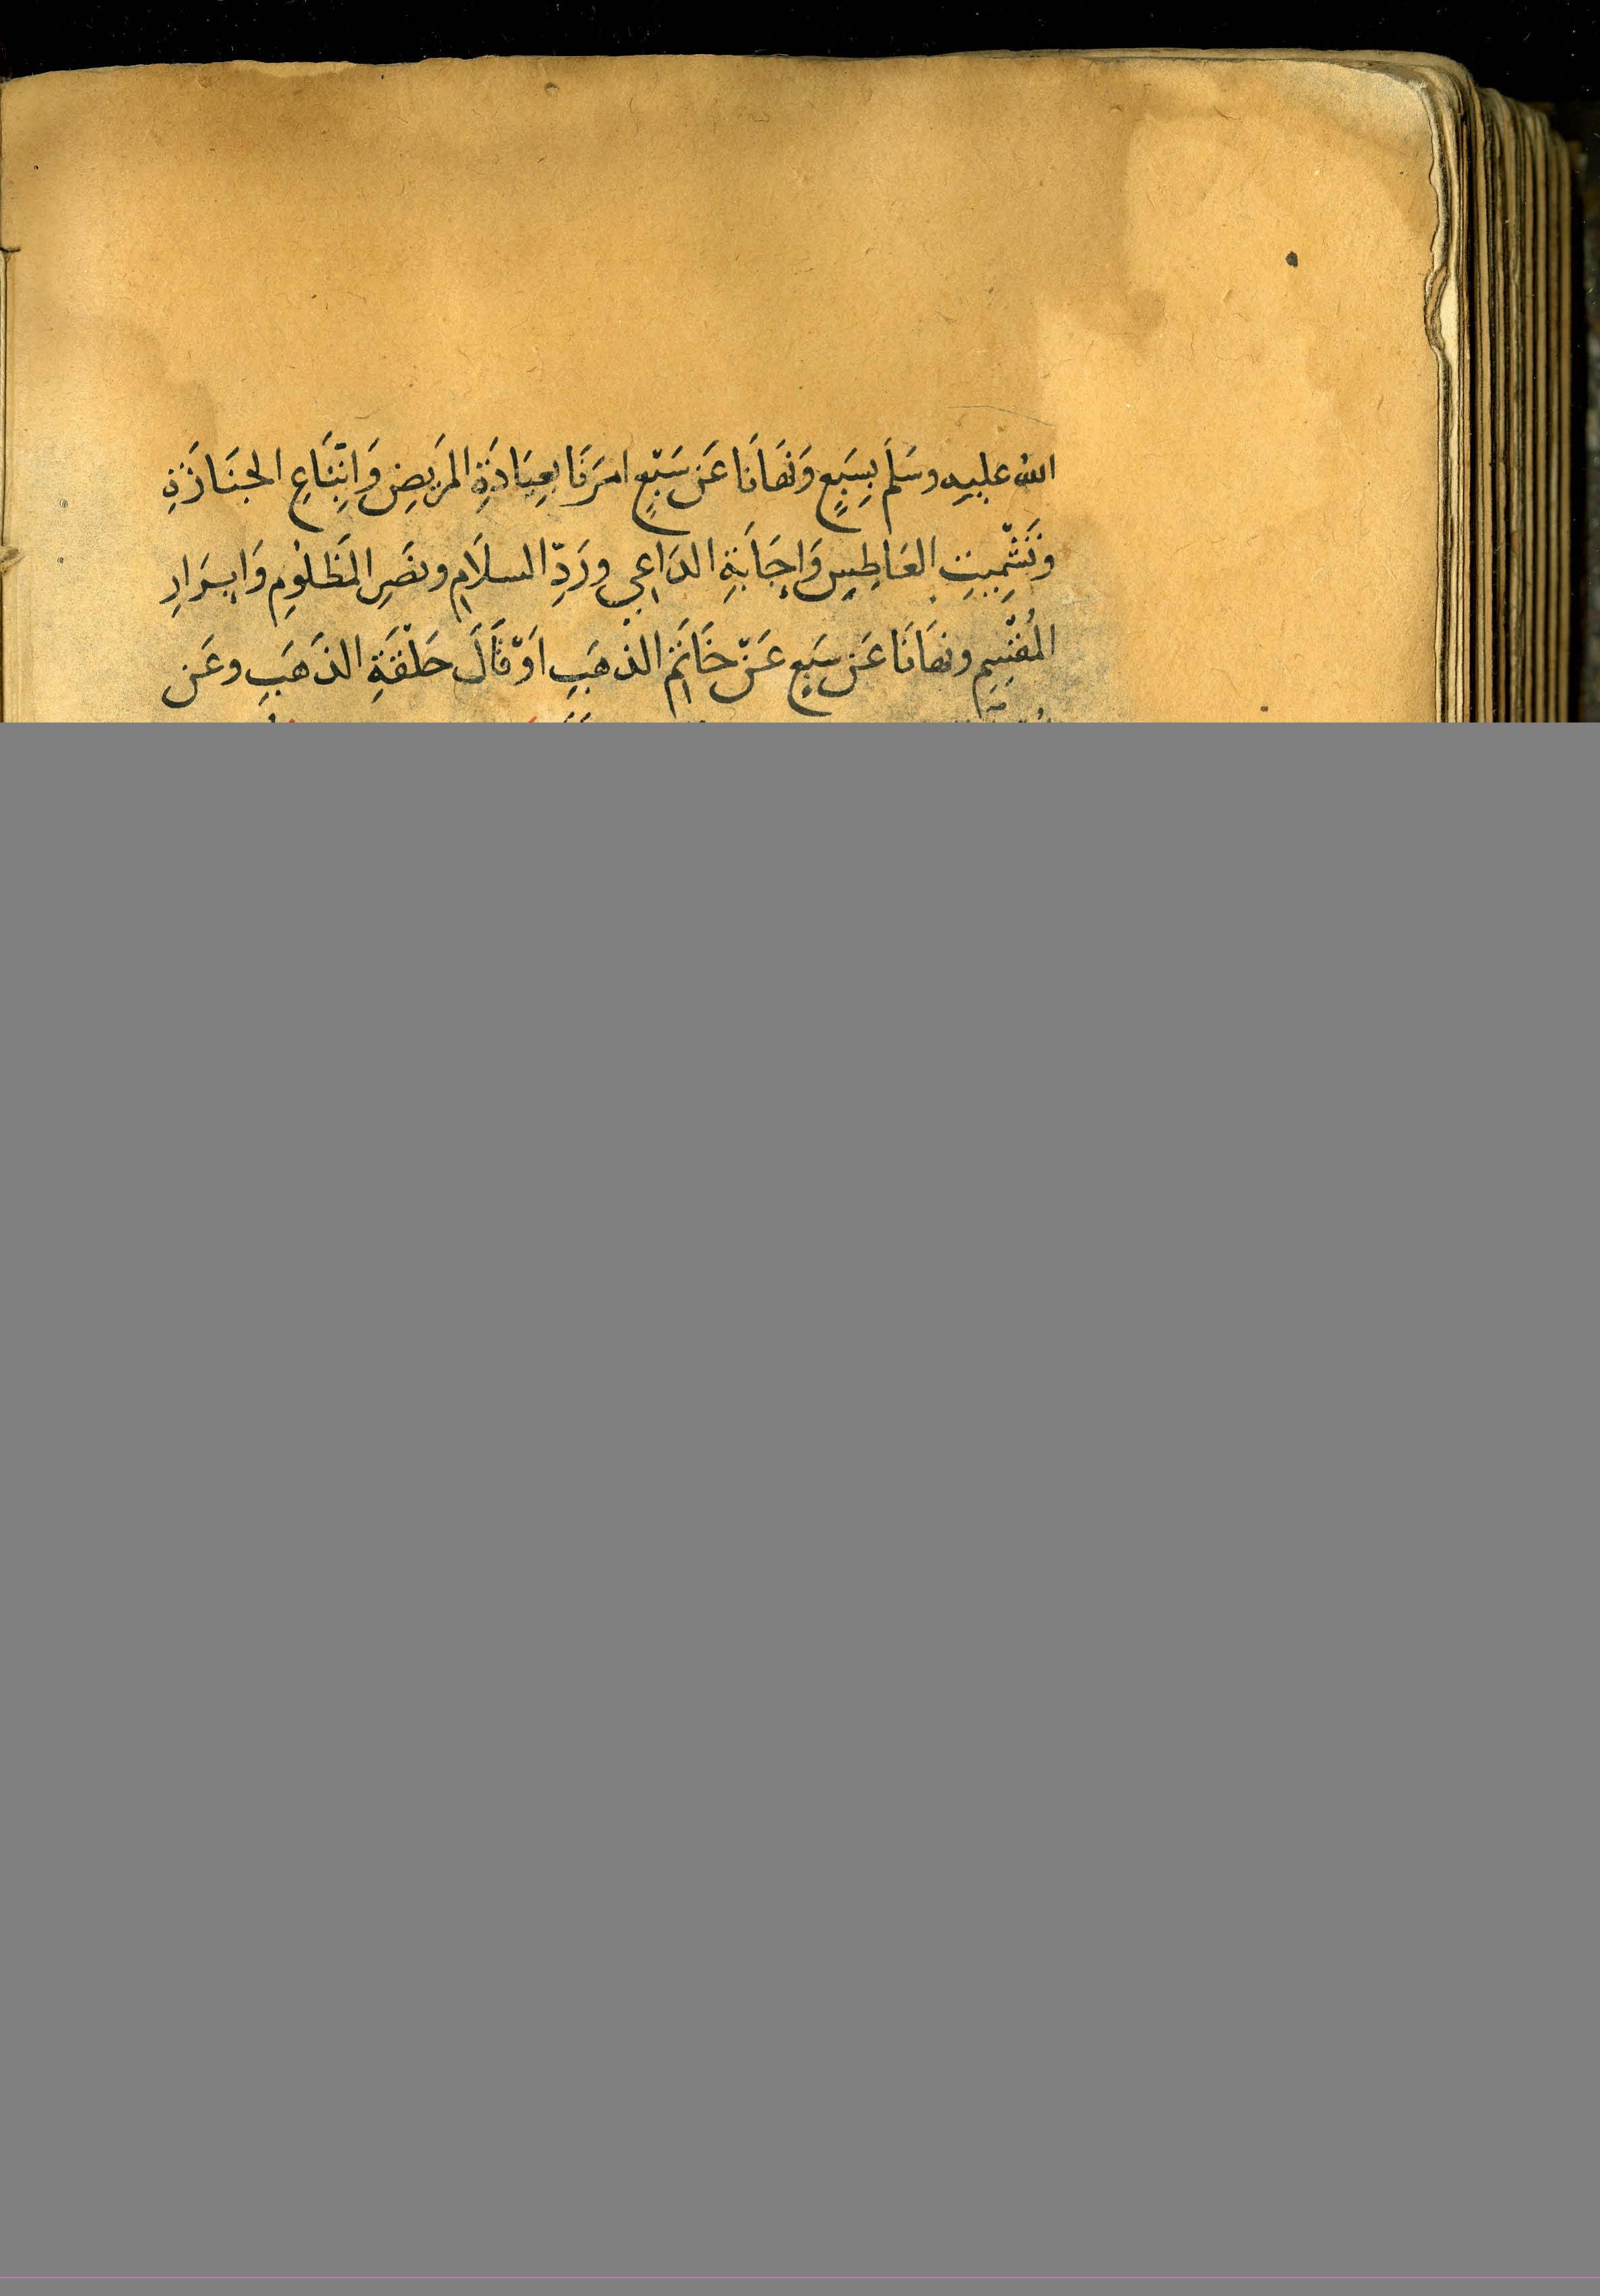 الله عليه وسَلَم بِسَبعٍ وَنَهَانَا عَن سَبْعٍ امَرَنَا بعِيَادَةِ المَريضِ وَاتِّبَاعِ الجَنَازَةِ
وتَشْمِيتِ العَاطِسِ وَاِجَابَةِ الدَاعِي ورَدِّ السلَامِ ونصَرِ المَظلُومِ وَاِبرَارِ
المُقْسِمِ ونهَانَا عَن سَبعٍ عَنْ خَاتَمِ الذهَبِ اَوْ قَالَ حَلْقَةِ الذَهَبِ وعَن